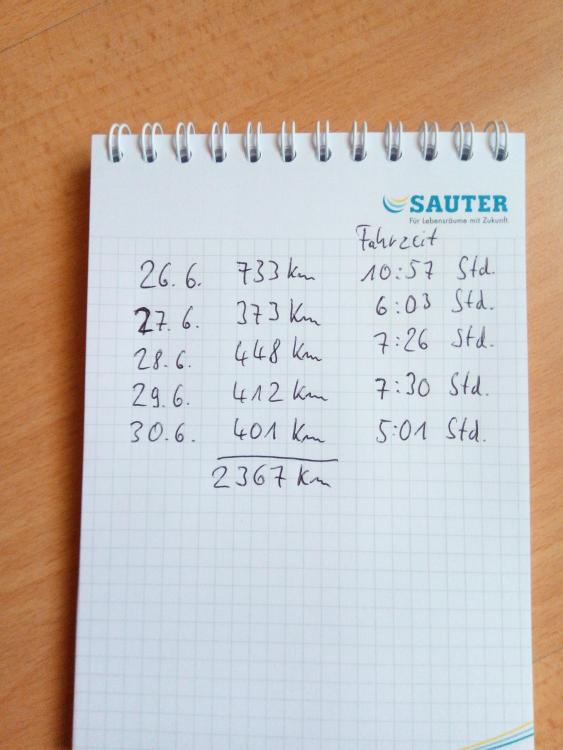 SAUTER
Für Lebensräume mit Zukunft.
Fahrzeit
26.6. 733 km 10:57 Std.
27.6. 373 km 6:03 Std.
28.6. 448 km 7:26 Std.
29.6. 412 km 7:30 Std.
30.6. 401 km 5:01 Std.
2367 km